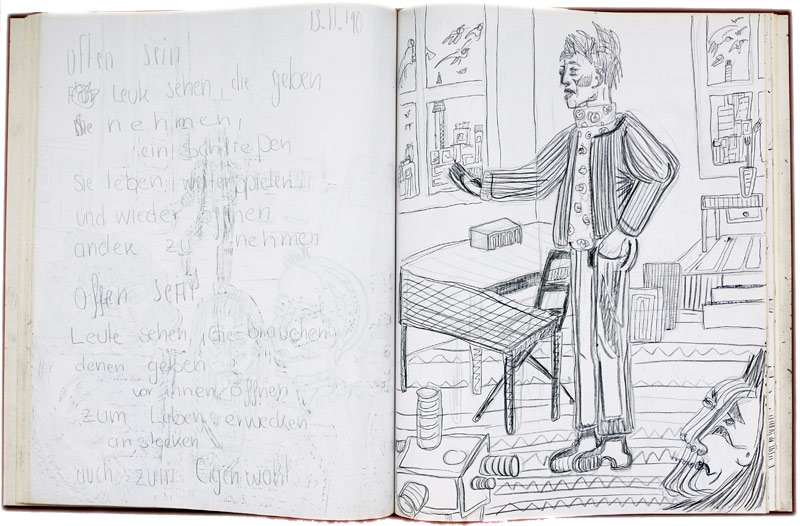 13.11.'90
offen sein!
Leute sehen, die geben
nehmen,
ein
sie leben, weiterspielen
und wieder öffnen
andere zu nehmen
offen sein
Leute sehen, die brauchen
denen geben
vor ihnen öffnen
zum Leben erwecken
anstecken
auch zum Eigenwohl